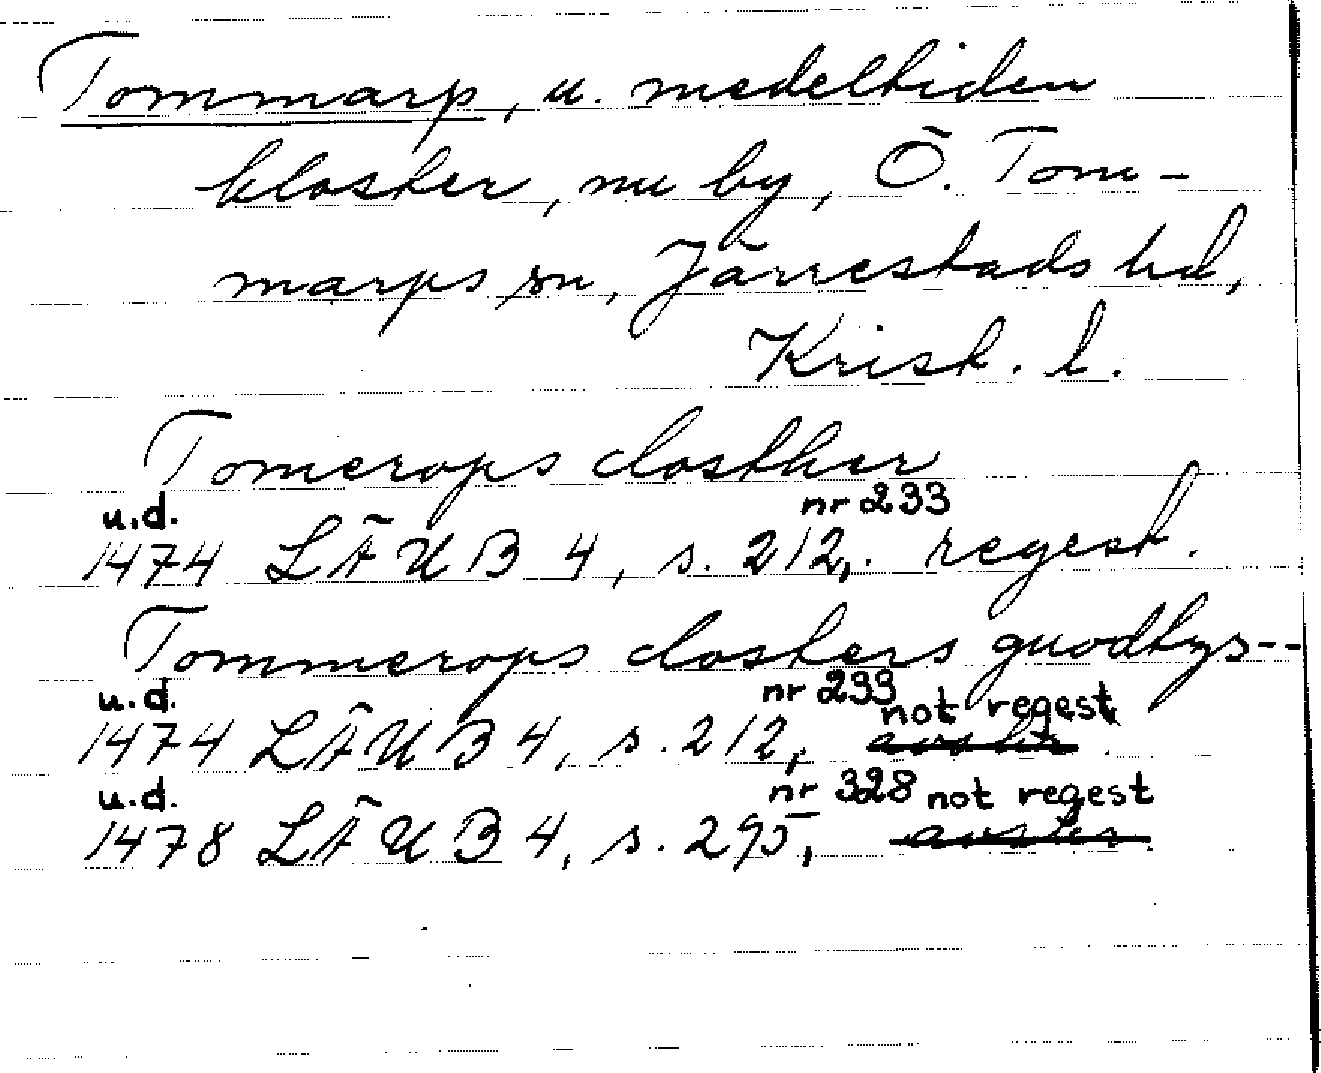 Tommarp, u. medeltiden
kloster, nu by, Ö. Tom-
marps sn, Järrestads hd,
Krist. l.
Tomerops closther
u.d. nr 233
1474 LÄUB 4, s. 212, regest.
Tommerops closters guodtzs--
u.d. nr 233 not regest
1474 LÄUB 4, s. 212,
u.d. nr 328 not regest
1478 LÄUB 4, s. 295,